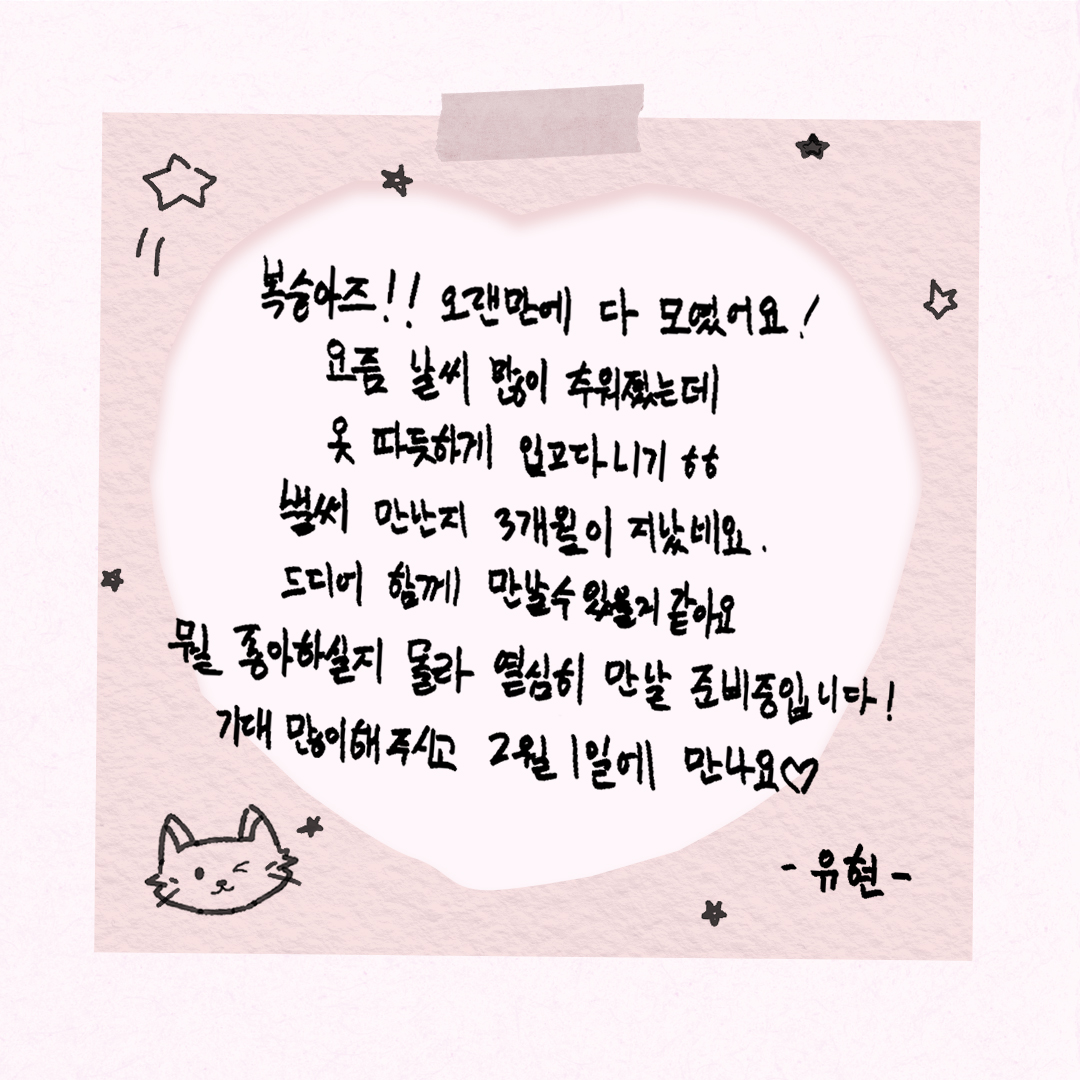 복숭아즈!! 오랜만에 다 모였어요!
요즘 날씨 많이 추워졌는데
옷 따듯하게 입고다니기 ㅎㅎ
벌써 만난지 3개월이 지났네요.
드디어 함께 만날수 있을거 같아요
뭘 좋아하실지 몰라 열심히 만날 준비중입니다!
기대 많이해주시고 2월 1일에 만나요♡
- 유현 -